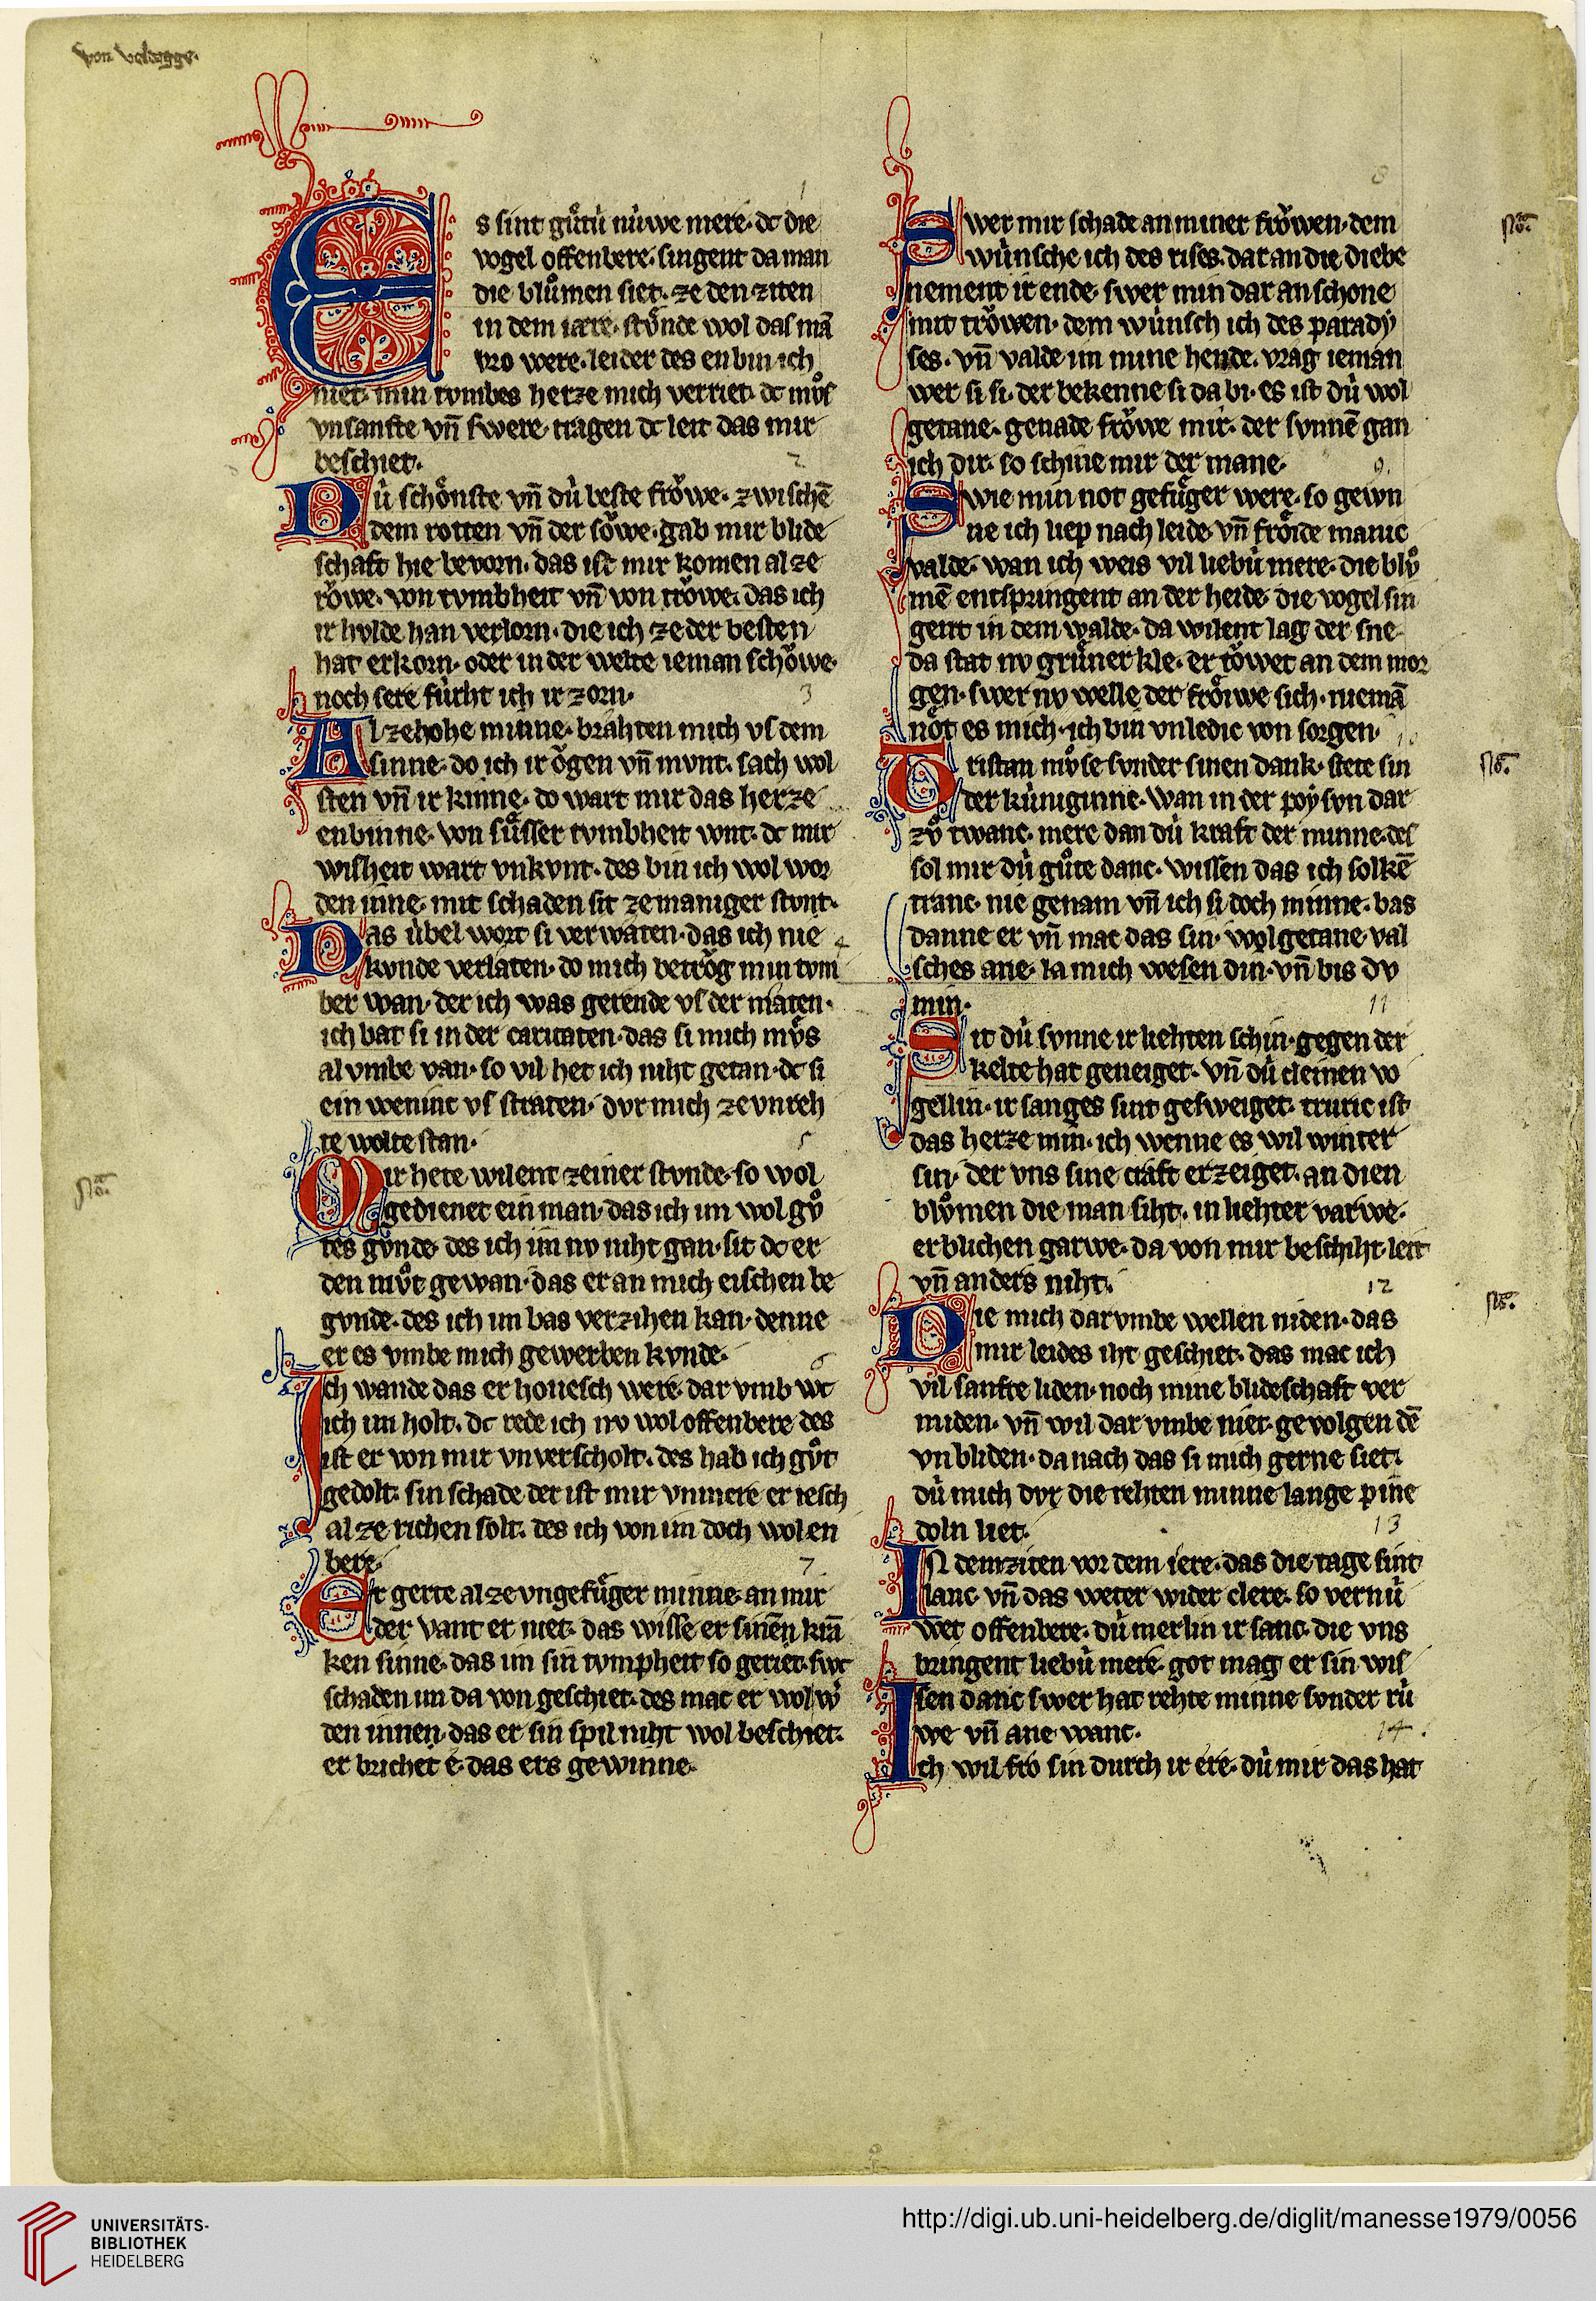 von veldegge.
Es sint gůtú núwe mere· dc die
vogel offenbere· singent da man
die blůmen siet· ze den ziten
in dem iare· stůnde wol das mā
vro were· leider des enbin ich
niet· min tvmbes herze mich verriet· dc můs
vnsanfte vn̄ swere· tragen dc leit das mir
beschiet·
Dú schȯnste vn̄ dú beste frȯwe· zwischē
dem rotten vn̄ der sȯwe· gab mir blide
schaft hie bevorn· das ist mir komen al ze
rȯwe· von tvmbheit vn̄ von trȯwe· das ich
ir hvlde han verlorn· die ich ze der besten
hat erkorn· oder in der welte ieman schȯwe·
noch sere fúrht ich ir zorn·
Al zehohe minne· brahten mich vs dem
sinne· do ich ir ȯgen vn̄ mvnt· sach wol
sten vn̄ ir kinne· do wart mir das herze
enbinne· von sůsser tvmbheit wnt· dc mir
wisheit wart vnkvnt· des bin ich wol wor
den inne· mit schaden sit ze maniger stvnt·
Das úbel wort si verwaten· das ich nie
kvnde verlaten· do mich betrȯg min tvm
ber wan· der ich was gerende vs der maten·
ich bat si in der caritaten· das si mich můs
al vmbe van· so vil het ich niht getan· dc si
ein weninc vs straten· dvr mich ze vnreh
te wolte stan·
Mir hete wilent zeiner stvnde· so wol
gedienet ein man· das ich im wol gů
tes gvnde· des ich im nv niht gan· sit dc er
den můt gewan· das er an mich eischen be
gvnde· des ich im bas verzihen kan· denne
er es vmbe mich gewerben kvnde·
Ich wande das er hovesch were· dar vmb wc
ich im holt· dc rede ich nv wol offenbere des
ist er von mir vnverscholt· des hab ich gůt
gedolt· sin schade der ist mir vnmere er iesch
al ze richen solt· des ich von im doch wol en
bere·
Er gerte al ze vngefůger minne· an mir
der vant er niet· das wisse er sinen kran
ken sinne· das im sin tvmpheit so geriet· swc
schaden im da von geschiet· des mac er wol w̄
den innen· das er sin spil niht wol beschiet·
er brichet e· das ers gewinne·
Swer mir schade an miner frȯwen· dem
wúnsche ich des rises· dar an die diebe
nement ir ende· swer min dar an schone
mit trȯwen· dem wúnsch ich des parady
ses· vn̄ valde im mine hende· vrag ieman
wer si si· der bekenne si da bi· es ist dú wol
getane· genade frȯwe mir· der svnnē gan
ich dir· so schine mir der mane·
Swie min not gefůger were· so gewn
ne ich liep nach leide· vn̄ frȯide manic
valde· wan ich weis vil liebú mere· die blů
mē entspringent an der heide· die vogel sin
gent in dem walde· da wilent lag der sne·
da stat nv grůner kle· er tȯwet an dem mor
gen· swer nv welle der frȯiwe sich· niemā
nȯt es mich· ich bin vnledic von sorgen·
Tristan můse svnder sinen dank· stete sin
der kúniginne· wan in der poysvn dar
zů twanc· mere dan dú kraft der minne· des
sol mir dú gůte danc· wissen das ich solkē
tranc· nie genam vn̄ ich si doch minne· bas
danne er vn̄ mac das sin· wolgetane val
sches ane· la mich wesen din· vn̄ bis dv
min·
Sit dú svnne ir liehten schin· gegen der
kelte hat geneiget· vn̄ dú cleinen vo
gellin· ir sanges sint gesweiget· truric ist
das herze min· ich wenne es wil winter
sin· der vns sine craft erzeiget· an dien
blůmen die man siht· in liehter varwe·
erblichen garwe· da von mir beschiht· leit
vn̄ anders niht·
Die mich darvmbe wellen niden· das
mir leides iht geschiet· das mac ich
vil sanfte liden· noch mine blideschaft ver
miden· vn̄ wil dar vmbe niet· gevolgen dē
vnbliden· da nach das si mich gerne siet·
dú mich dvr die rehten minne lange pine
doln liet·
IN den ziten vor dem iere· das die tage sint
lanc· vn̄ das weter wider clere· so vernú
wet offenbere· dú merlin ir sanc· die vns
bringent liebú mere· got mag er sin wis
sen danc swer hat rehte minne svnder rú
we vn̄ ane wanc·
Ich wil fro sin durch ir ere· dú mir das hat
1
2
3
4
5
6
7
8
9.
10
11
12
13
14
UNIVERSITÄTS-
BIBLIOTHEK
HEIDELBERG
http://digi.ub.uni-heidelberg.de/diglit/manesse1979/0056